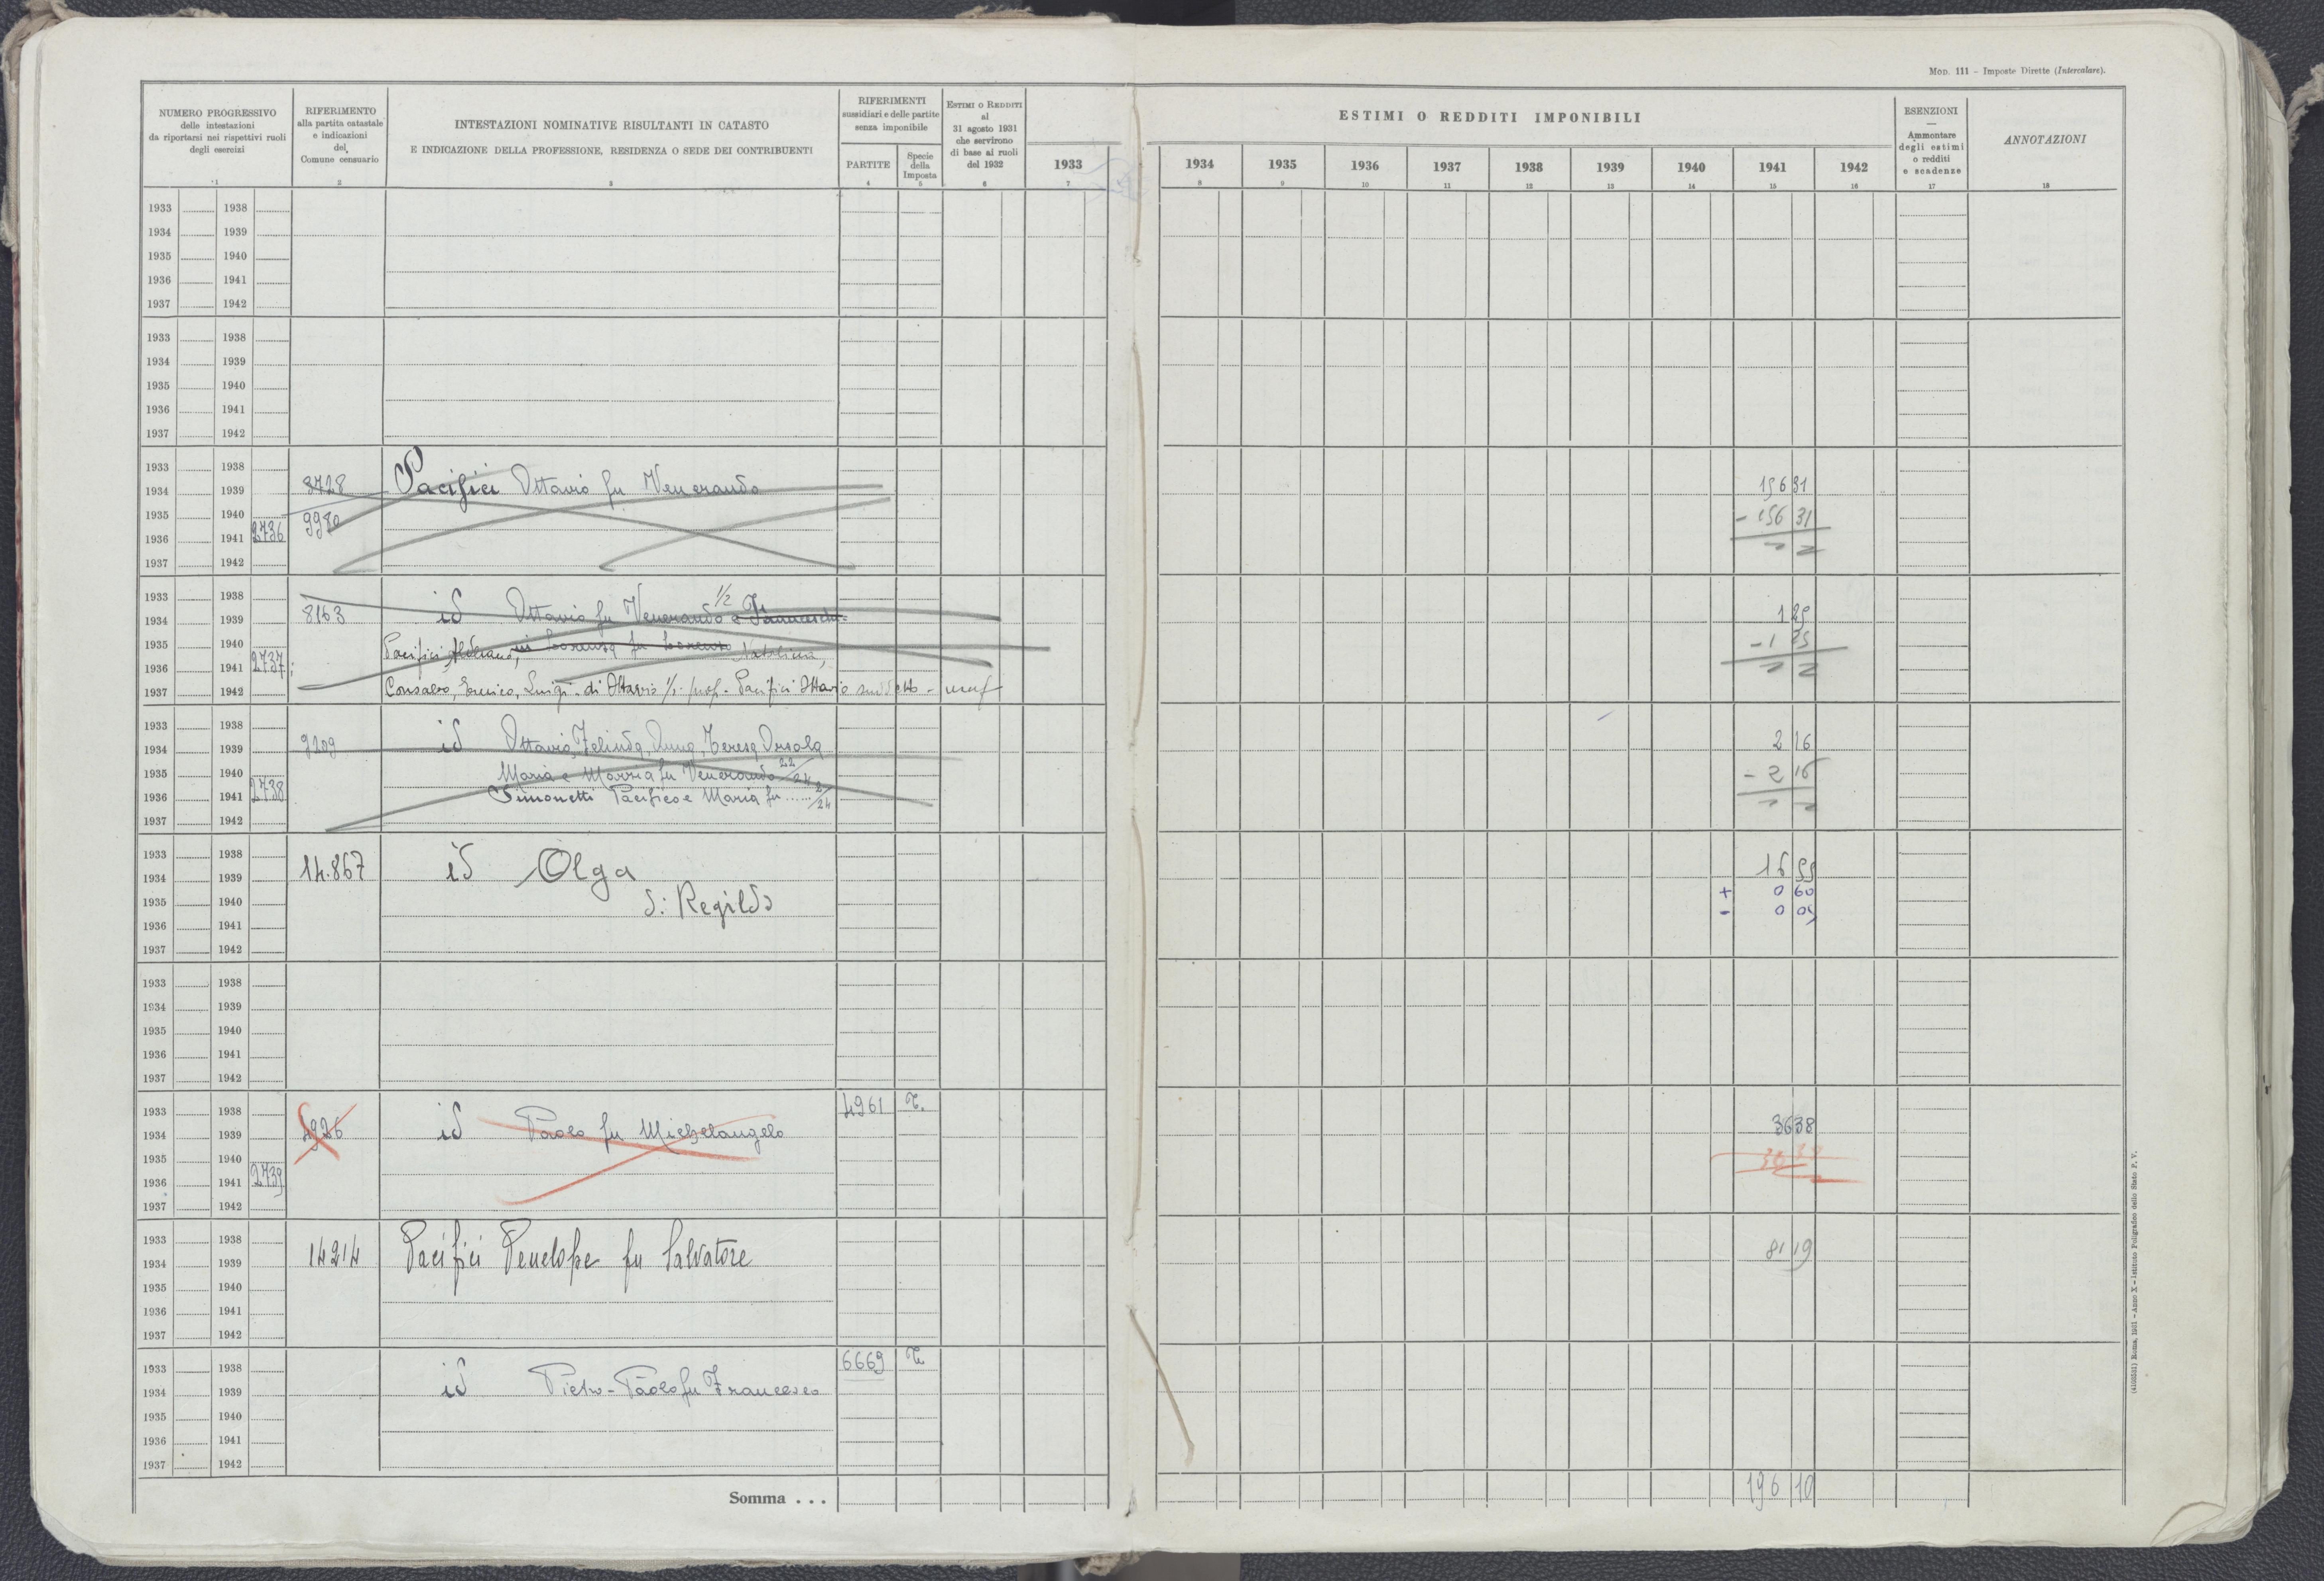 Mod. 111 - Imposte Dirette (Intercalare).
NUMERO PROGRESSIVO
delle intestazioni
da riportarsi nei rispettivi ruoli
degli esercizi
1
RIFERIMENTO
alla partita catastale
e indicazioni
del
Comune censuario
2
INTESTAZIONI NOMINATIVE RISULTANTI IN CATASTO
E INDICAZIONE DELLA PROFESSIONE, RESIDENZA O SEDE DEI CONTRIBUENTI
3
RIFERIMENTI
sussidiari e delle partite
senza imponibile
PARTITE
4
Specie
della
Imposta
5
Estimi o Redditi
al
31 agosto 1931
che servirono
di base ai ruoli
del 1932
6
1933
7
ESTIMI O REDDITI IMPONIBILI
1934 1935 1936 1937 1938 1939 1940 1941 1942
8 9 10 11 12 13 14 15 16
ESENZIONI
Ammontare
degli estimi
o redditi
e scadenze
17
ANNOTAZIONI
18
1933 1938
1934 1939
1935 1940
1936 1941
1937 1942
1933 1938
1934 1939
1935 1940
1936 1941
1937 1942
1933 1938
1934 1939 8728 Pacifici Ottavio fu Venerando 156 31
1935 1940 9980 - 156 31
1936 1941 2736
1937 1942
1933 1938
1934 1939 8163 id Ottavio fu Venerando 1/2 1 25
1935 1940 Pacifici Natalina, - 1 25
1936 1941 2737
1937 1942 Consalvo, Enrico, Luigi di Ottavio 1/2 prop. Pacifici Ottavio suddetto - usuf
1933 1938
1934 1939 9209 id Ottavio, Zelinda, Anna, Teresa, Orsola 2 16
1935 1940 Maria e Marzia fu Venerando 22/24 - 2 16
1936 1941 2738 Simonetti Pacifico e Maria fu ...... 2/24
1937 1942
1933 1938
1934 1939 14.867 id Olga 16 55
1935 1940 di Regildo + 0 60
1936 1941 - 0 05
1937 1942
1933 1938
1934 1939
1935 1940
1936 1941
1937 1942
1933 1938 4961 T.
1934 1939 4926 id Paolo fu Michelangelo 36 38
1935 1940 36 38
1936 1941 2739
1937 1942
1933 1938
1934 1939 14214 Pacifici Penelope fu Salvatore 81 19
1935 1940
1936 1941
1937 1942
1933 1938 6669 T.
1934 1939 id Pietro-Paolo fu Francesco
1935 1940
1936 1941
1937 1942
Somma . . . 196 10
(4100531) Roma, 1931 - Anno X - Istituto Poligrafico dello Stato P. V.